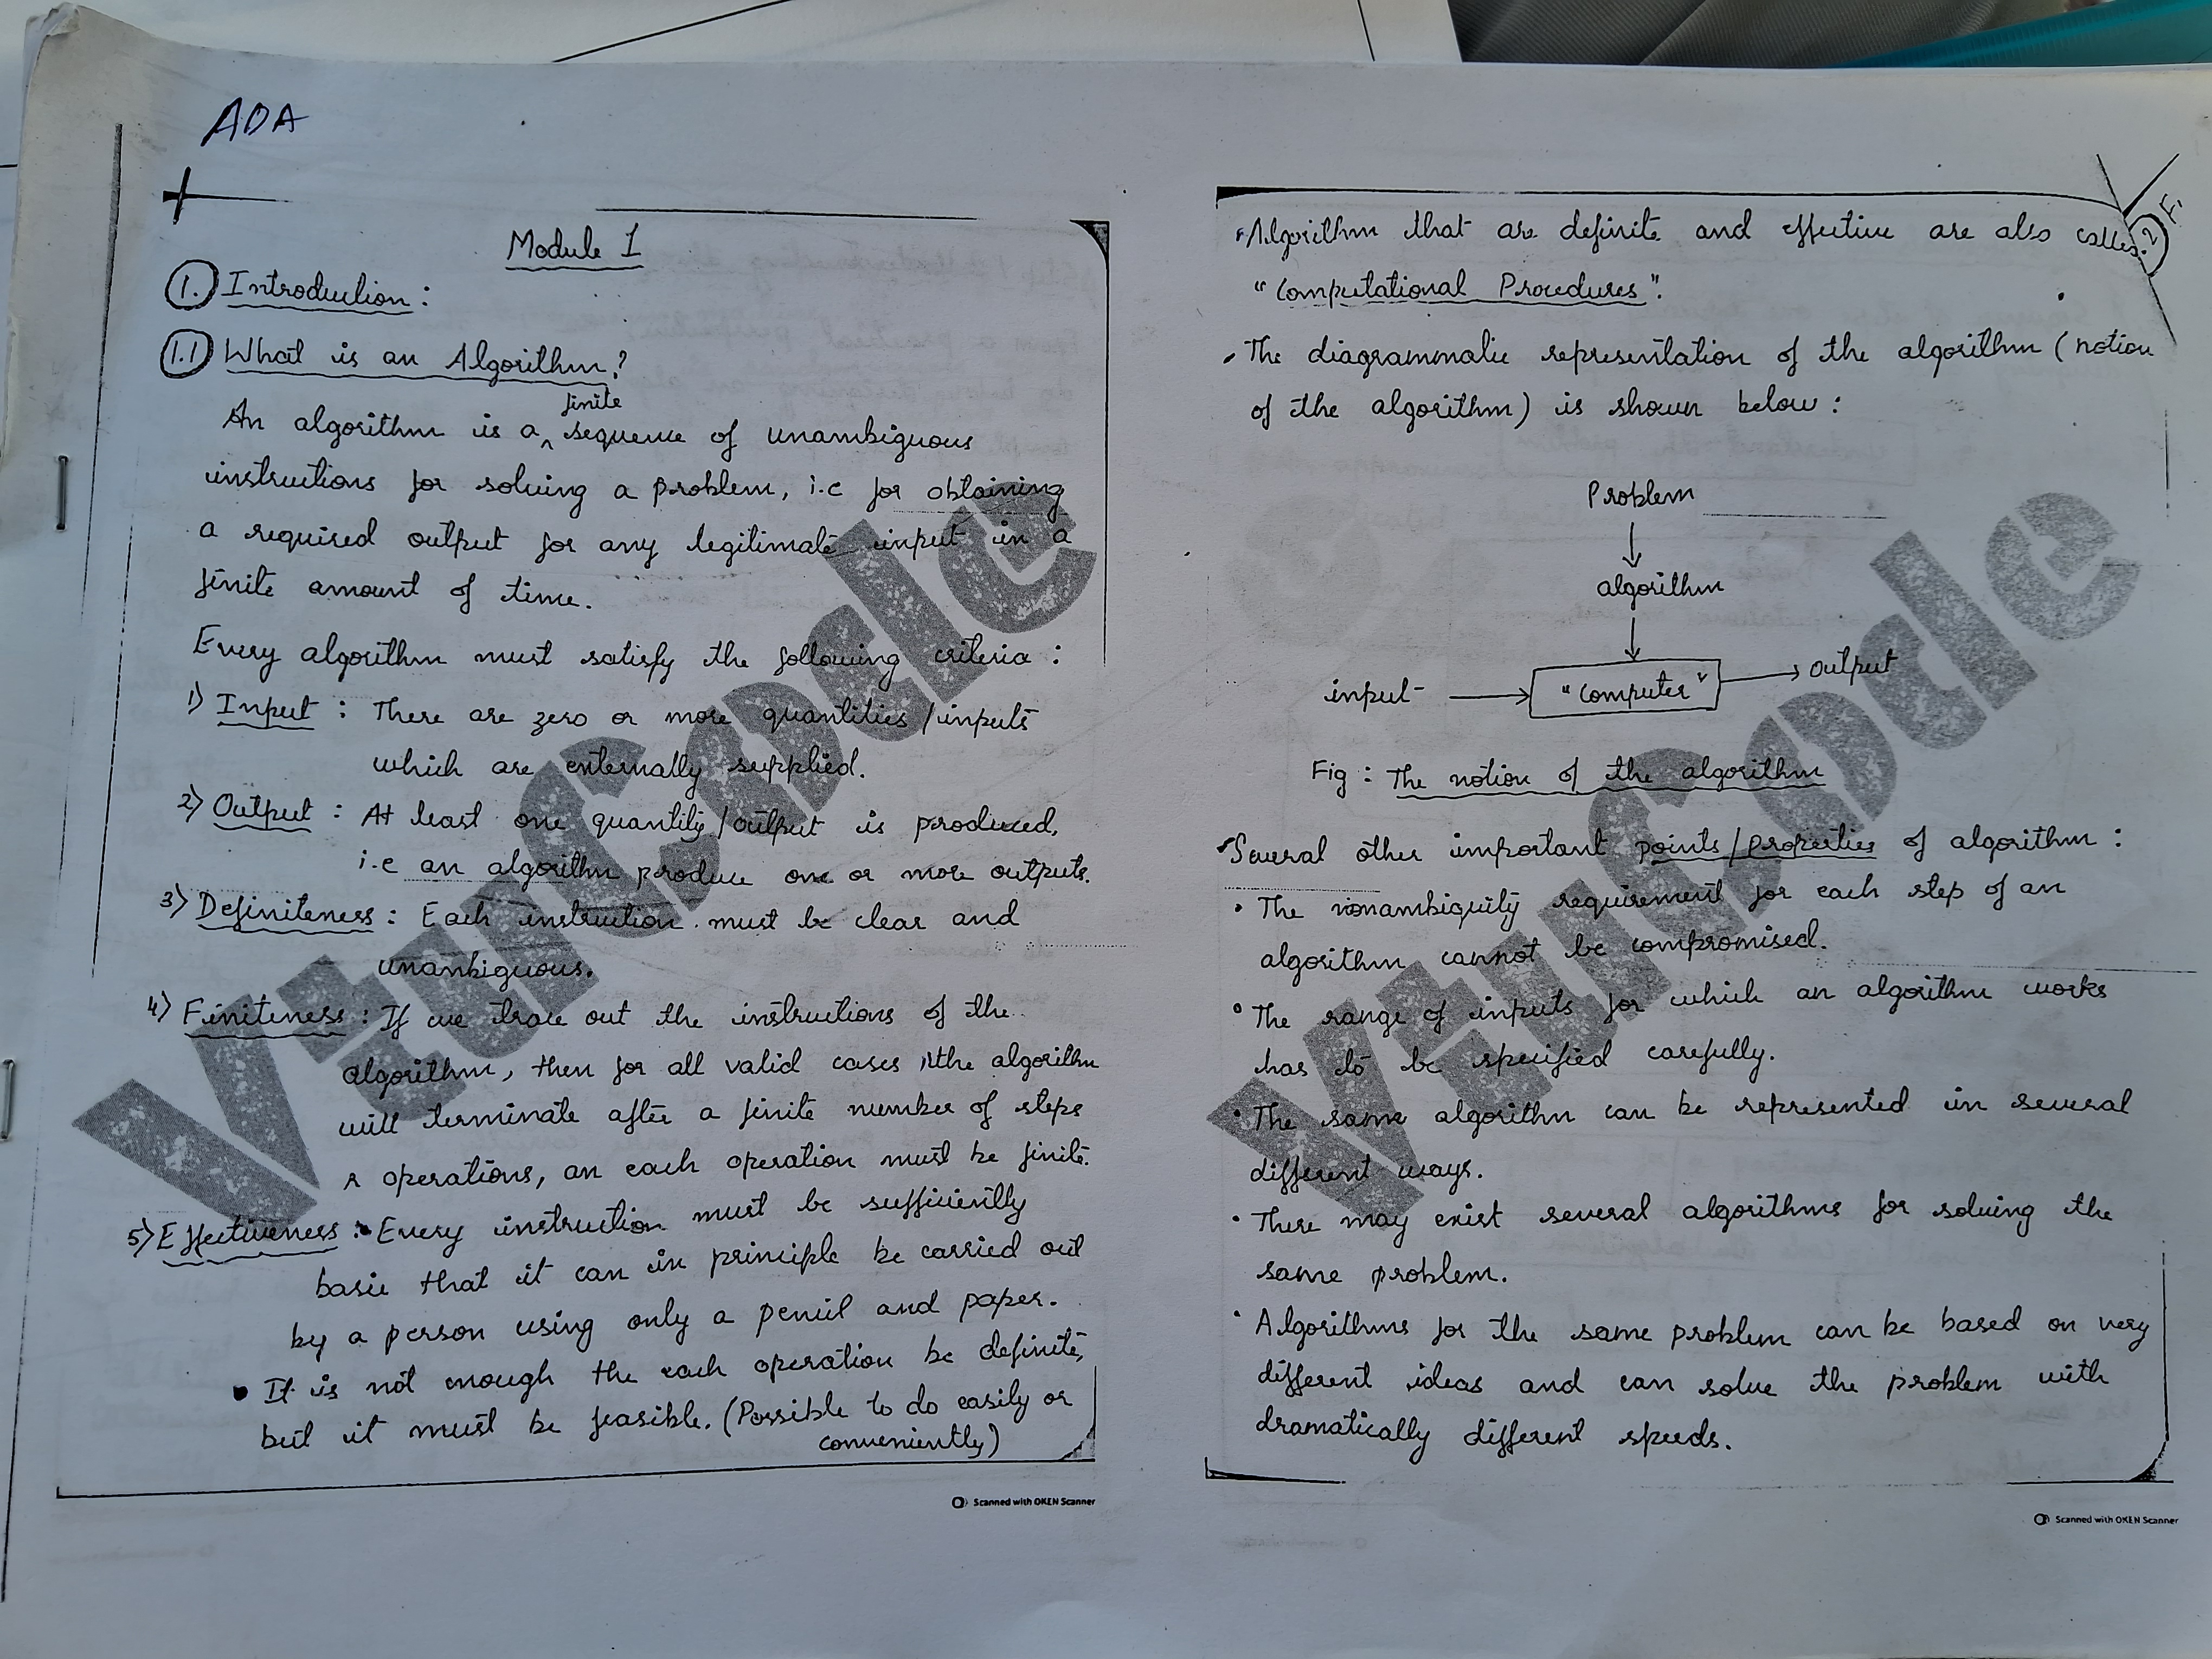 ADA
Module 1
1. Introduction :
1.1 What is an Algorithm?
finite
An algorithm is a ^ sequence of unambiguous
instructions for solving a problem, i.e for obtaining
a required output for any legitimate input in a
finite amount of time.
Every algorithm must satisfy the following criteria :
1) Input : There are zero or more quantities/inputs
which are externally supplied.
2) Output : At least one quantity/output is produced,
i.e an algorithm produce one or more outputs.
3) Definiteness : Each instruction must be clear and
unambiguous.
4) Finiteness : If we trace out the instructions of the
algorithm, then for all valid cases, the algorithm
will terminate after a finite number of steps
r operations, an each operation must be finite.
5) Effectiveness : Every instruction must be sufficiently
basic that it can in principle be carried out
by a person using only a pencil and paper.
• It is not enough the each operation be definite,
but it must be feasible. (Possible to do easily or
conveniently)
Scanned with OKEN Scanner
VtuCode
2
Algorithm that are definite and effective are also called
"Computational Procedures".
The diagrammatic representation of the algorithm (notion
of the algorithm) is shown below :
Problem
algorithm
input "computer" output
Fig : The notion of the algorithm
Several other important points/properties of algorithm :
• The nonambiguity requirement for each step of an
algorithm cannot be compromised.
• The range of inputs for which an algorithm works
has to be specified carefully.
• The same algorithm can be represented in several
different ways.
• There may exist several algorithms for solving the
same problem.
• Algorithms for the same problem can be based on very
different ideas and can solve the problem with
dramatically different speeds.
Scanned with OKEN Scanner
VtuCode